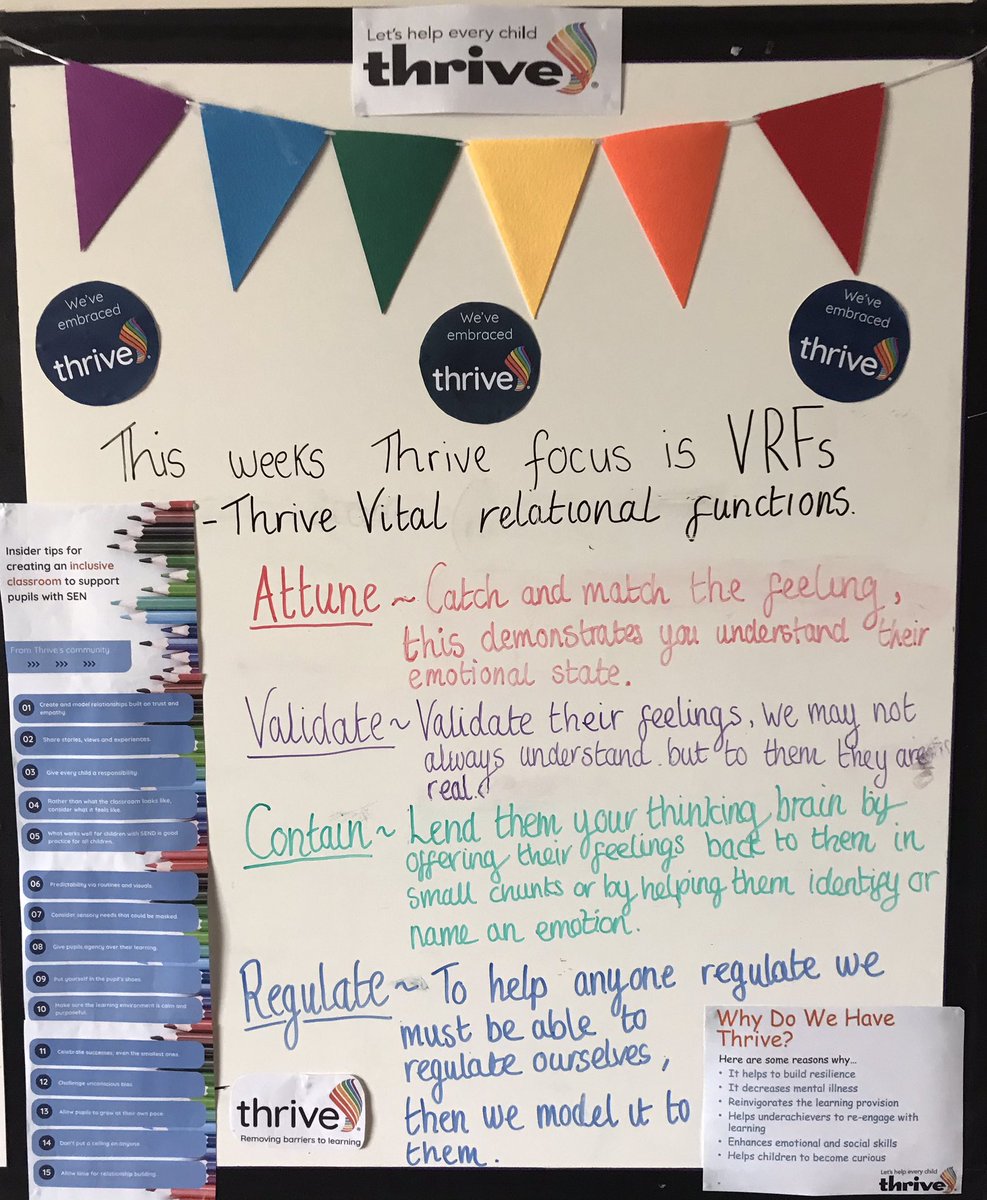 Let's help every child
thrive
We've
embraced
thrive
We've
embraced
thrive
We've
embraced
thrive
This weeks Thrive focus is VRFs
-Thrive Vital relational functions.
Attune ~ Catch and match the feeling,
this demonstrates you understand their
emotional state.
Validate ~ Validate their feelings, we may not
always understand. but to them they are
real.
Contain ~ Lend them your thinking brain by
offering their feelings back to them in
small chunks or by helping them identify or
name an emotion.
Regulate ~ To help anyone regulate we
must be able to
regulate ourselves,
then we model it to
them.
Insider tips for
creating an inclusive
classroom to support
pupils with SEN
From Thrive's community
>>> >>> >>>
01 Create and model relationships built on trust and
empathy.
02 Share stories, views and experiences.
03 Give every child a responsibility.
04 Rather than what the classroom looks like,
consider what it feels like.
05 What works well for children with SEND is good
practice for all children.
06 Predictability via routines and visuals.
07 Consider sensory needs that could be masked.
08 Give pupils agency over their learning.
09 Put yourself in the pupil's shoes.
10 Make sure the learning environment is calm and
purposeful.
11 Celebrate successes, even the smallest ones.
12 Challenge unconscious bias.
13 Allow pupils to grow at their own pace.
14 Don't put a ceiling on anyone.
15 Allow time for relationship building.
thrive
Removing barriers to learning
Why Do We Have
Thrive?
Here are some reasons why...
• It helps to build resilience
• It decreases mental illness
• Reinvigorates the learning provision
• Helps underachievers to re-engage with
learning
• Enhances emotional and social skills
• Helps children to become curious
Let's help every child
thrive